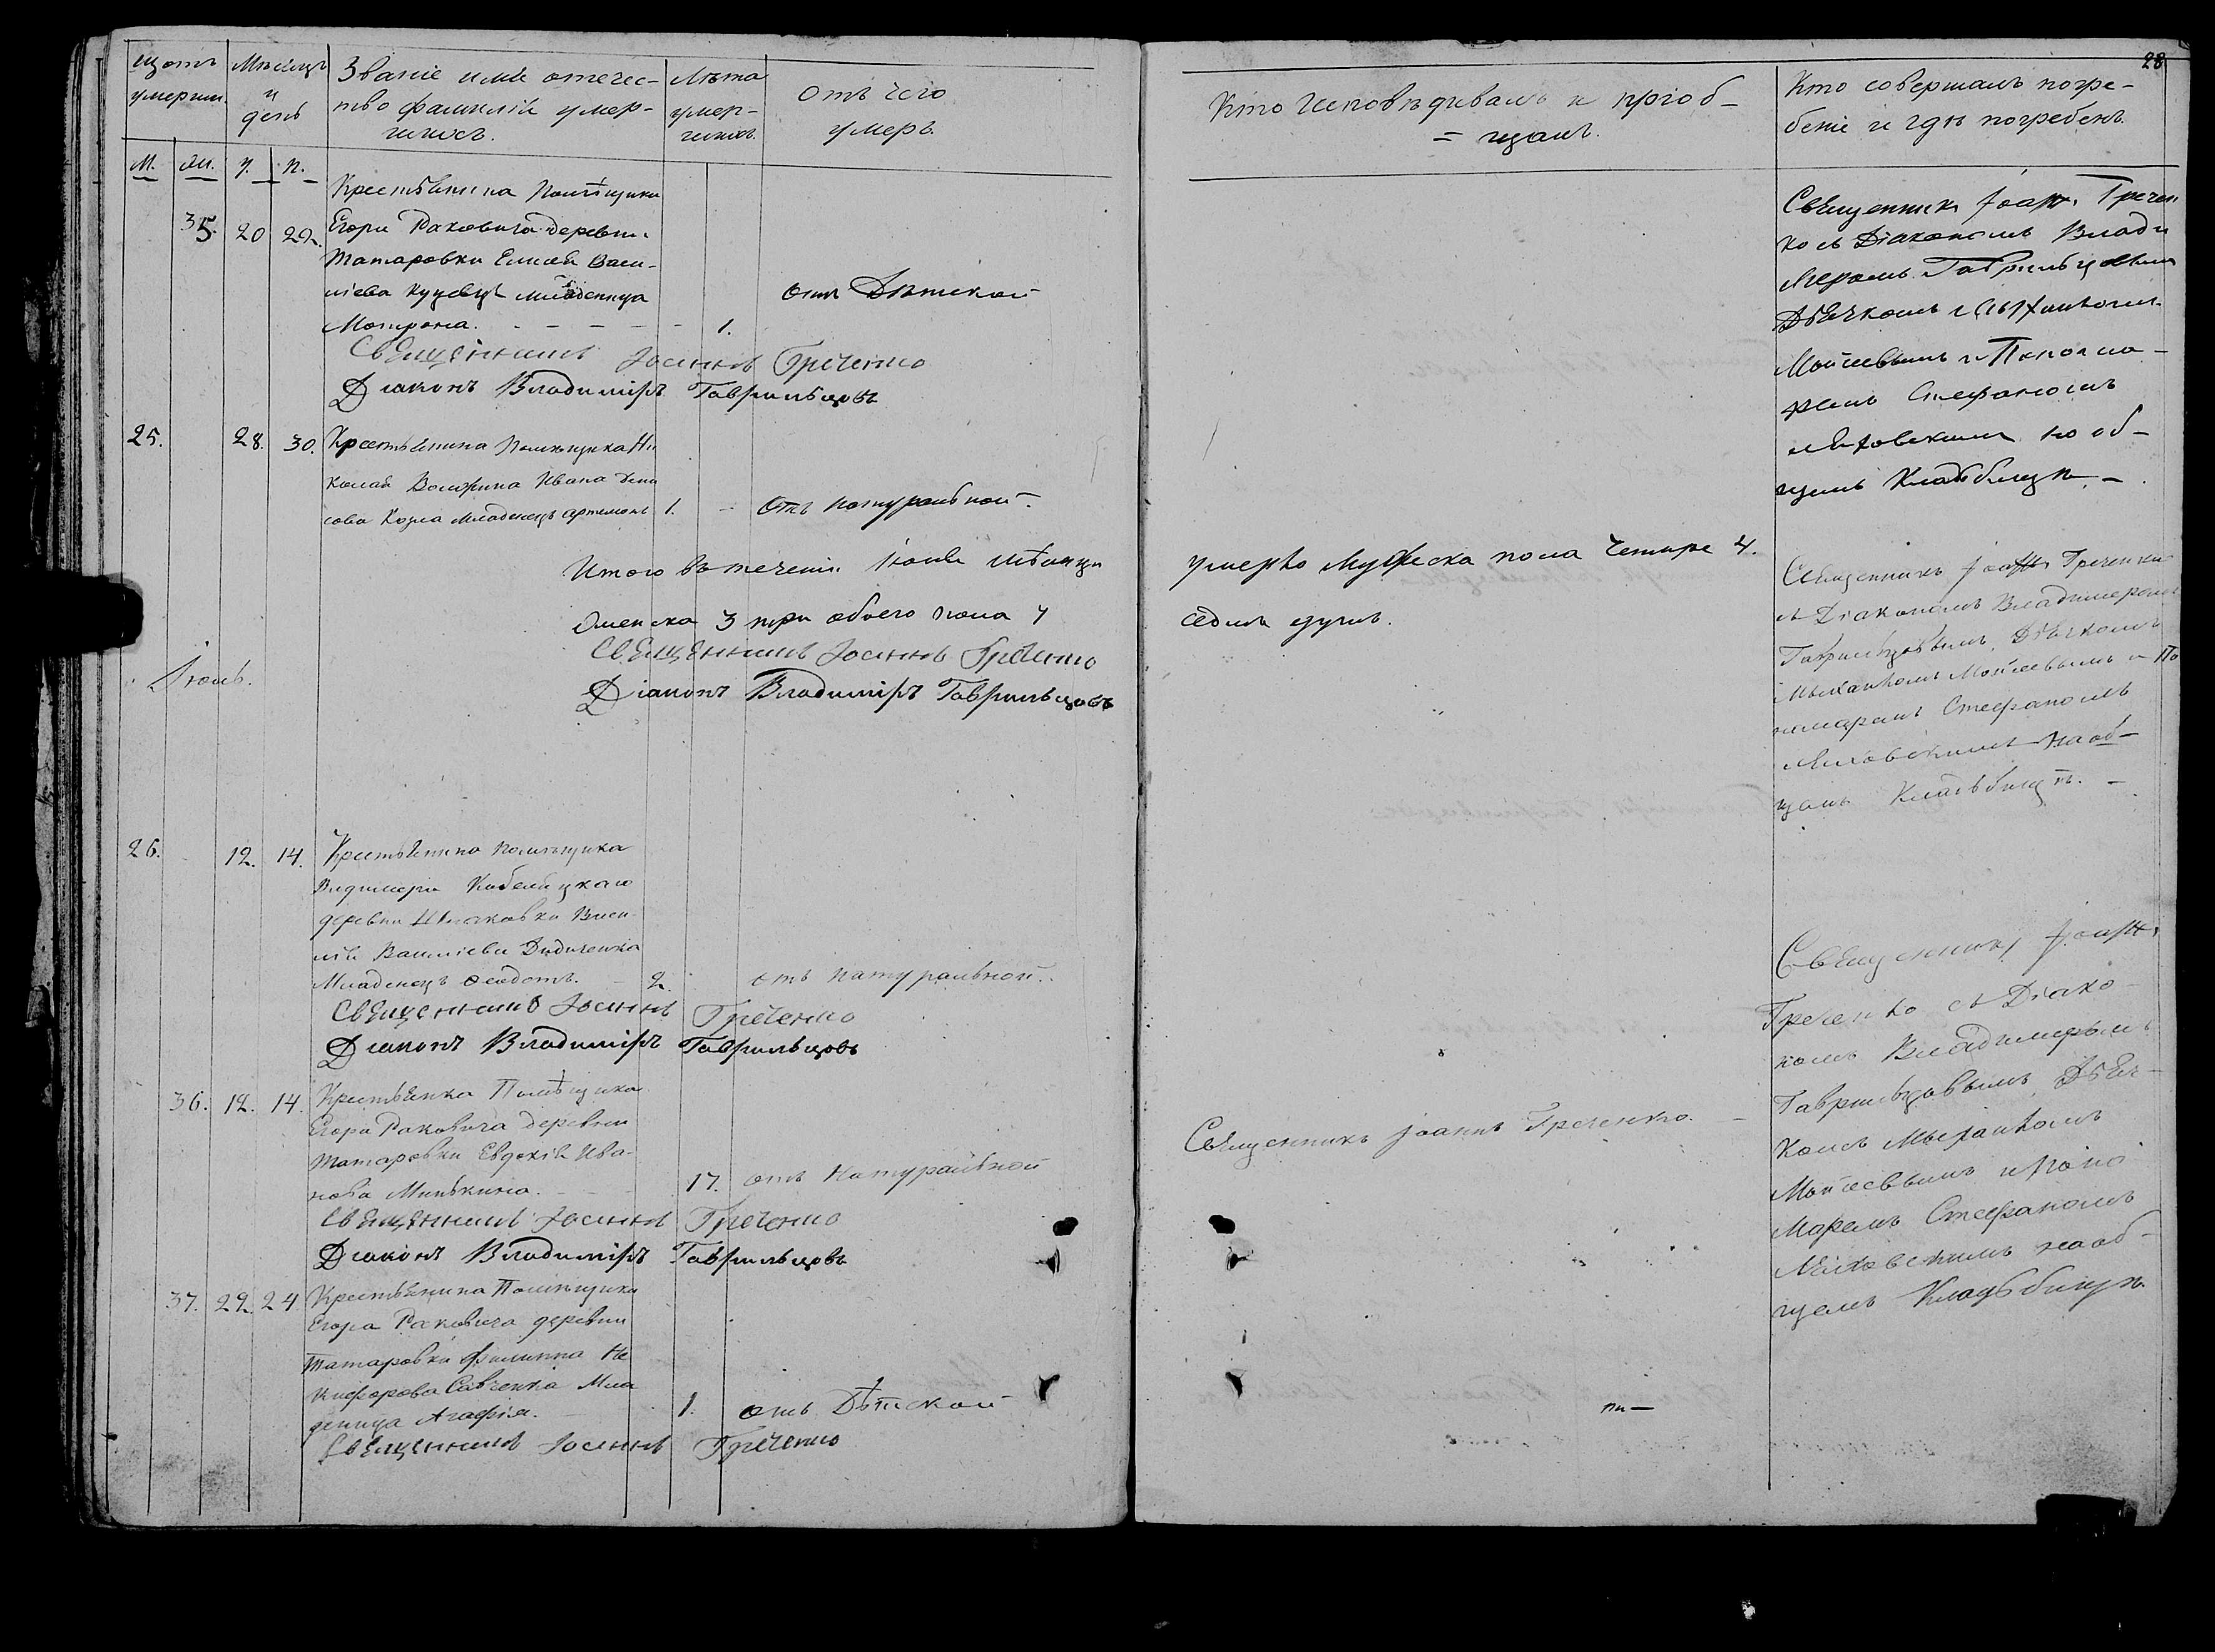 щотъ умерш.
Мѣсяцъ и день
Званіе имя отечес-
тво фамилія умер-
шихъ.
Лѣта умер-
шихъ
Отъ чего
умеръ
М. Жп. У. П.
Крестьянина Помѣщика
35. 20 22. Егора Раковича деревни
Татаровки Елисея Васи-
ліева младеница
Мотрона. 1. отъ Дѣтской
Священникъ Іоаннъ Греченко
Діаконъ Владиміръ Гаврильцовъ
25. 28. 30. Крестьянина Помѣщика Ни
колая Ивана Дени
сова Козла младенецъ Артемонъ 1. – Отъ натуральной
Итого въ теченіи Іюня мѣсяца
женска 3 три обоего пола 7
Священникъ Іоаннъ Греченко
Діаконъ Владиміръ Гаврильцовъ
Іюль.
26. 12. 14. Крестьянина помѣщика
деревни Васи-
лія Василіева Дидиченка
Младенецъ Феодотъ. – 2. отъ натуральной.
Священникъ Іоаннъ Греченко
Діаконъ Владиміръ Гаврильцовъ
36. 12. 14. Крестьянка Помѣщика
Егора Раковича деревни
Татаровки Евдокія Ива-
нова Минькина. 17. отъ натуральной
Священникъ Іоаннъ Греченко
Діаконъ Владиміръ Гаврильцовъ
37. 22 24 Крестьянина Помѣщика
Егора Раковича деревни
Татаровки Филиппа Не
кифорова Савченка Мла
деница Агафія. 1. отъ Дѣтской
Священникъ Іоаннъ Греченко
28
Кто исповѣдивалъ и пріоб-
= щалъ.
Кто совершалъ погре-
беніе и гдѣ погребенъ
Священникъ Іоаннъ Гречен
ко съ Діакономъ Влади
меромъ Гаврильцовымъ
Дьячкомъ
Мойсевымъ и Понома-
ремъ Стефаномъ
на об-
щемъ Кладбищѣ. –
умерло Мужеска пола Четыре 4.
седмъ душъ.
Священникъ Іоаннъ Греченко
съ Діакономъ Владимеромъ
Гаврильцовымъ, Дьячкомъ
Мыхаиломъ Мойсевымъ и По
номаремъ Стефаномъ
на об-
щемъ Кладьбищѣ. –
Священникъ Іоаннъ
Греченко съ Діако-
номъ Владимеромъ
Гаврильцовымъ, Дьяч-
комъ Мыхаиломъ
Мойсевымъ и Поно
Маремъ Стефаномъ
на об-
щемъ Кладьбищѣ
Священникъ Іоаннъ Греченко. –